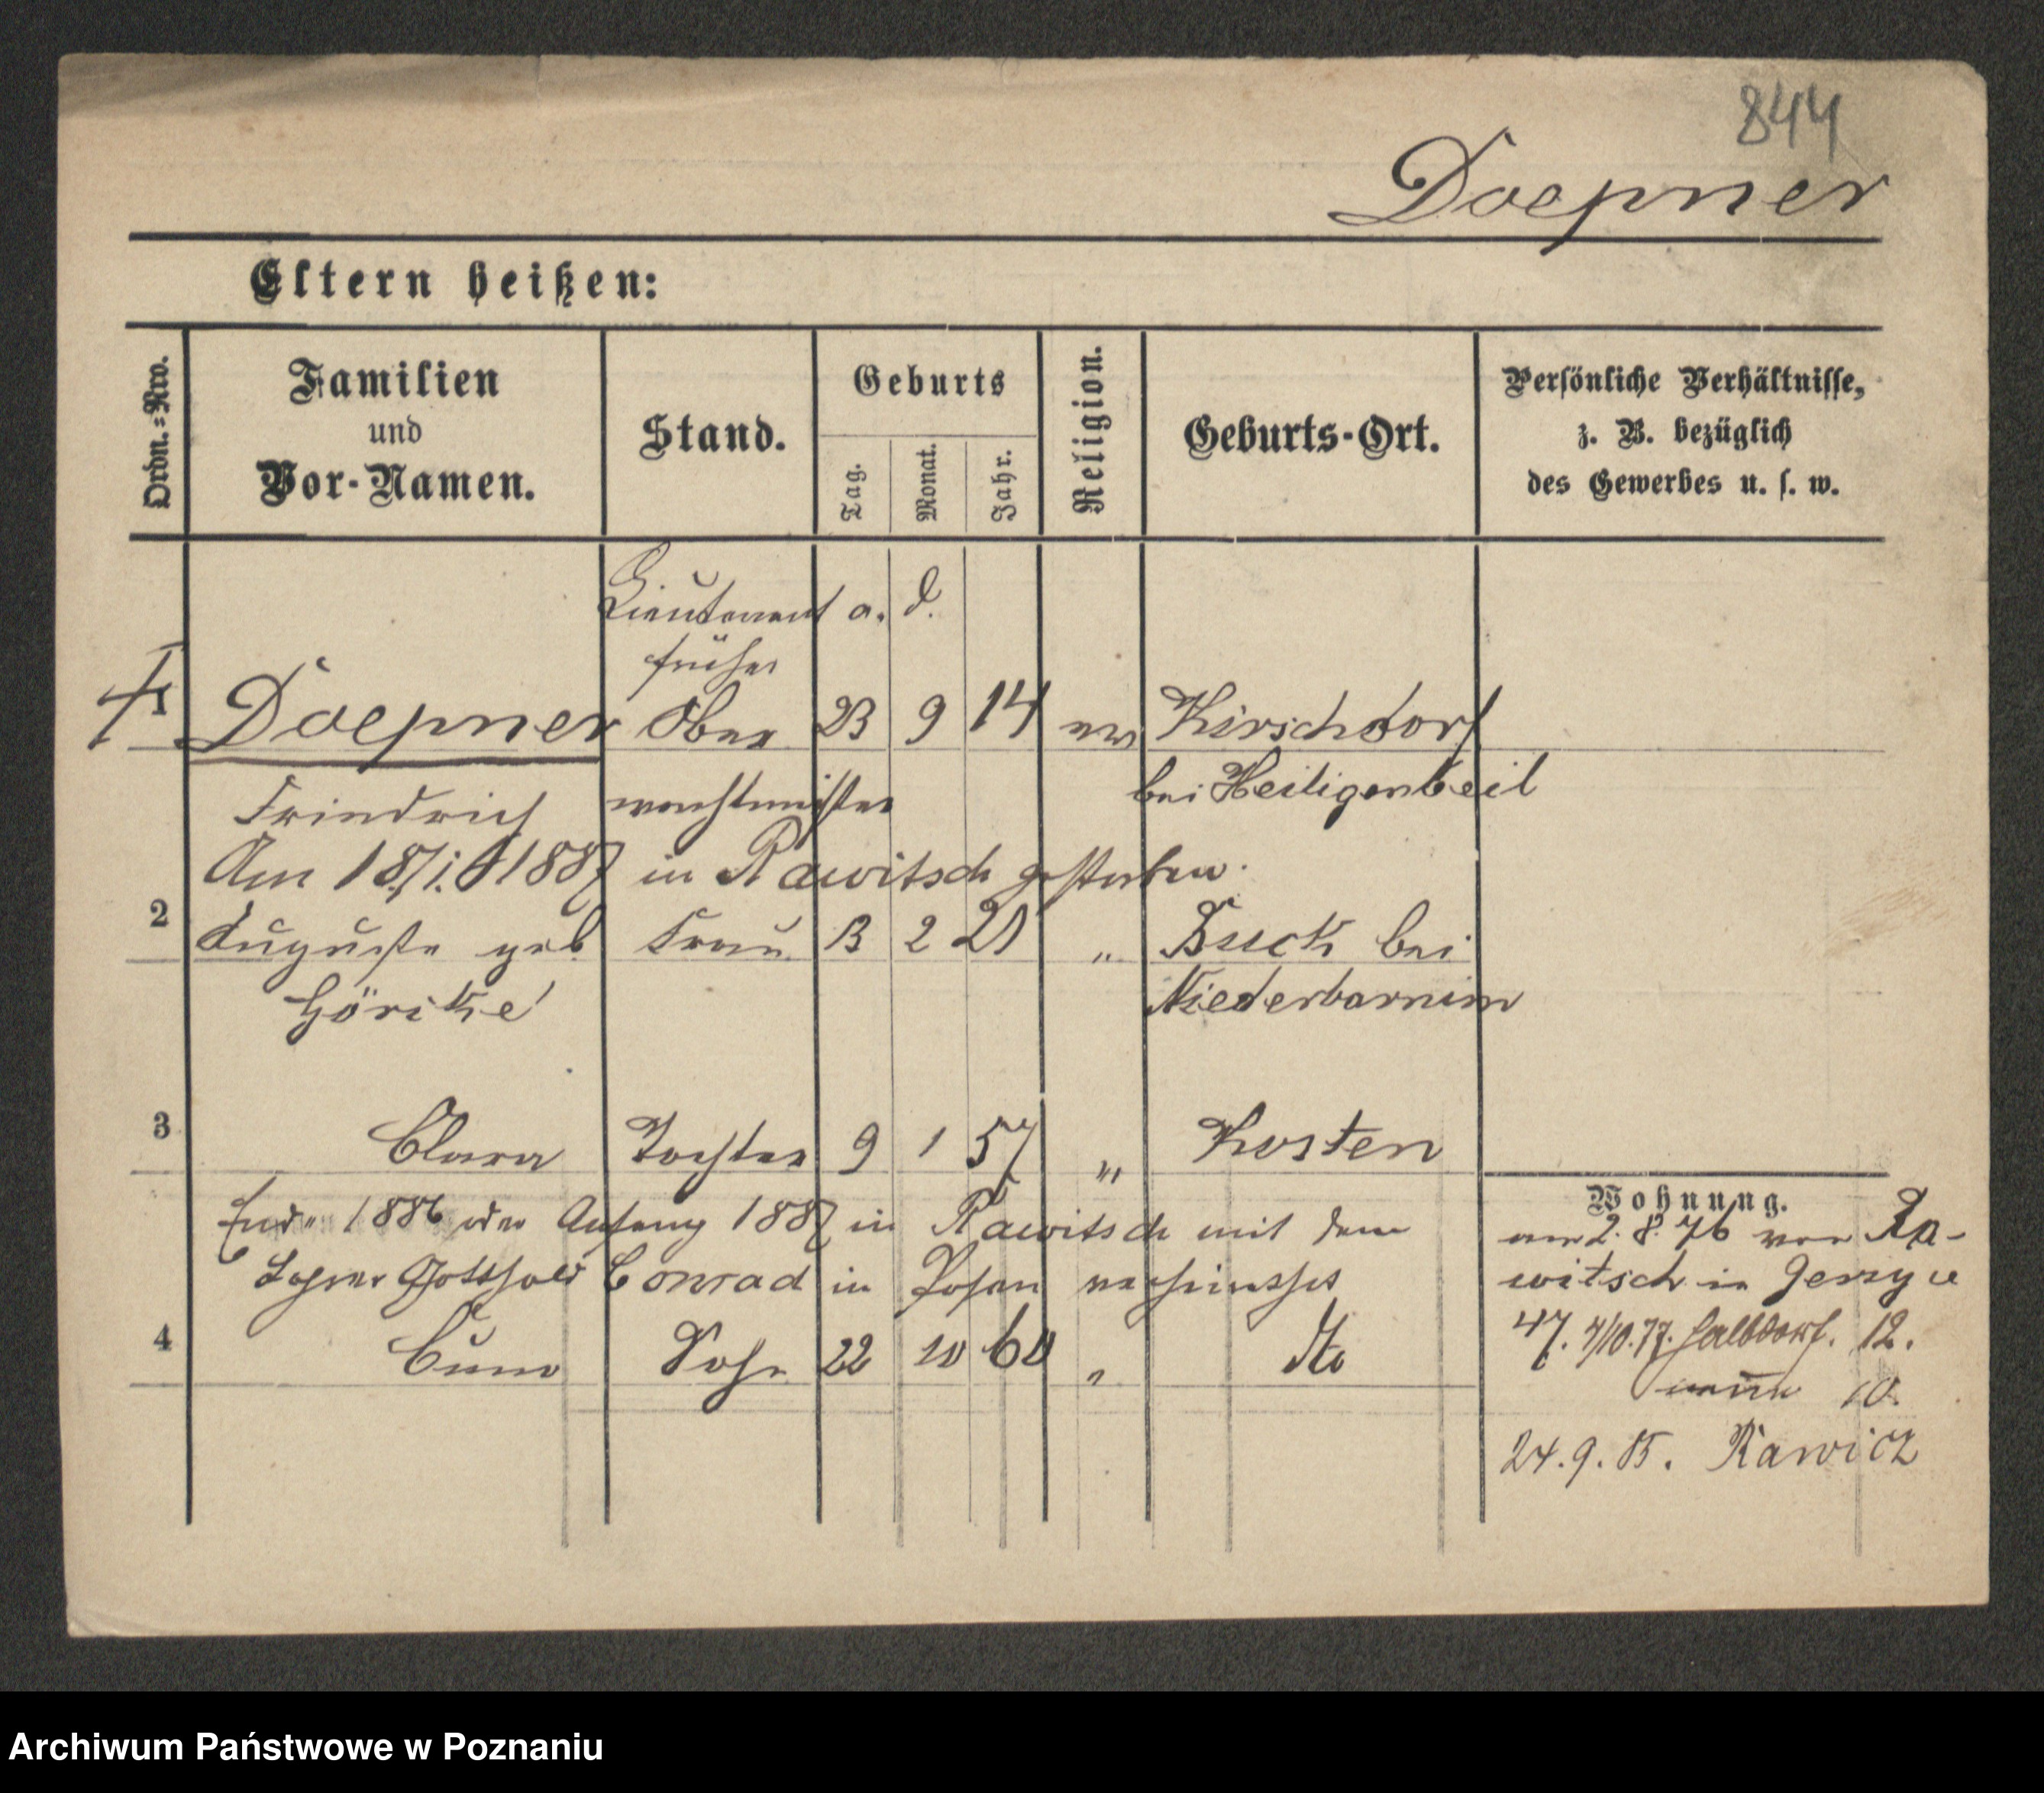 844
Doepner
Eltern heißen:
Ordn.=Nro.
Familien
und
Vor-Namen.
Stand.
Geburts
Tag.
Monat.
Jahr.
Religion.
Geburts-Ort.
Persönliche Verhältnisse,
z. B. bezüglich
des Gewerbes u. s. w.
Lieutenant a. D.
früher
1 Doepner Ober 23 9 14 ev Kirschdorf
Friedrich wachtmeister bei Heiligenbeil
Am 18/1. 1887 in Rawitsch gestorben.
2 Auguste geb Frau 13 2 21 " Buck bei
Göricke Niederbarnim
3 Clara Tochter 9 1 57 " Kosten
Ende 1886 oder Anfang 1887 in Rawitsch mit dem
Lehrer Gotthold Conrad in Posen verheirathet
4 Cuno Sohn 22 10 60 " dto
Wohnung.
am 2. 8. 76 von Ra-
witsch in Jerzyce
47. 4/10. 77. Halbdorf. 12.
10.
24. 9. 85. Rawicz
Archiwum Państwowe w Poznaniu